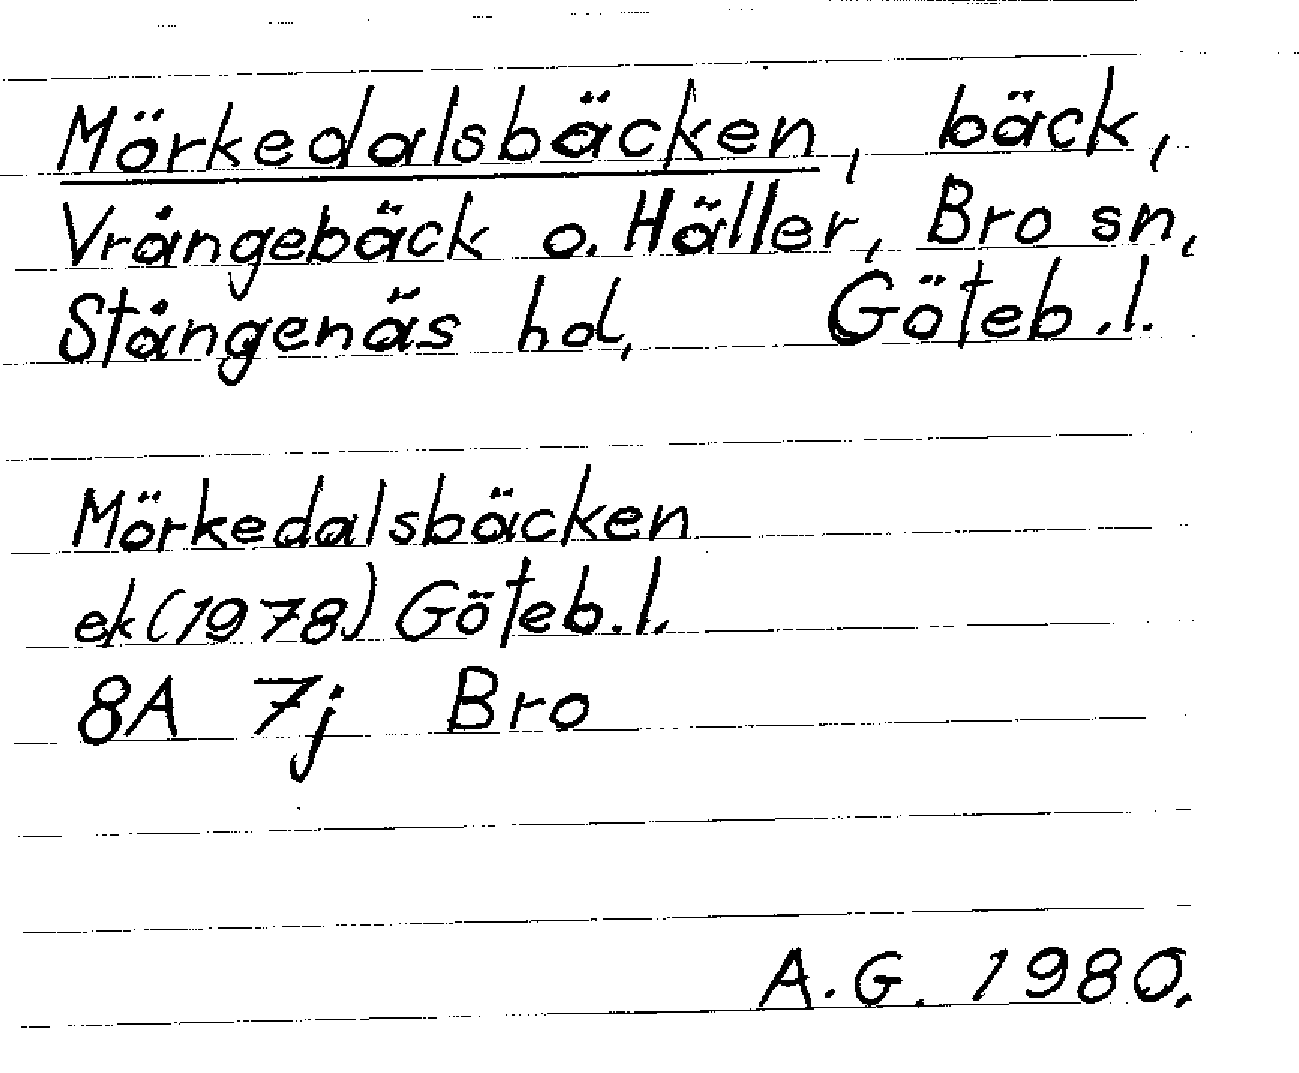 Mörkedalsbäcken, bäck,
Vrångebäck o. Häller, Bro sn,
Stångenäs hd, Göteb.l.
Mörkedalsbäcken
ek(1978) Göteb.l.
8A 7j Bro
A.G. 1980.